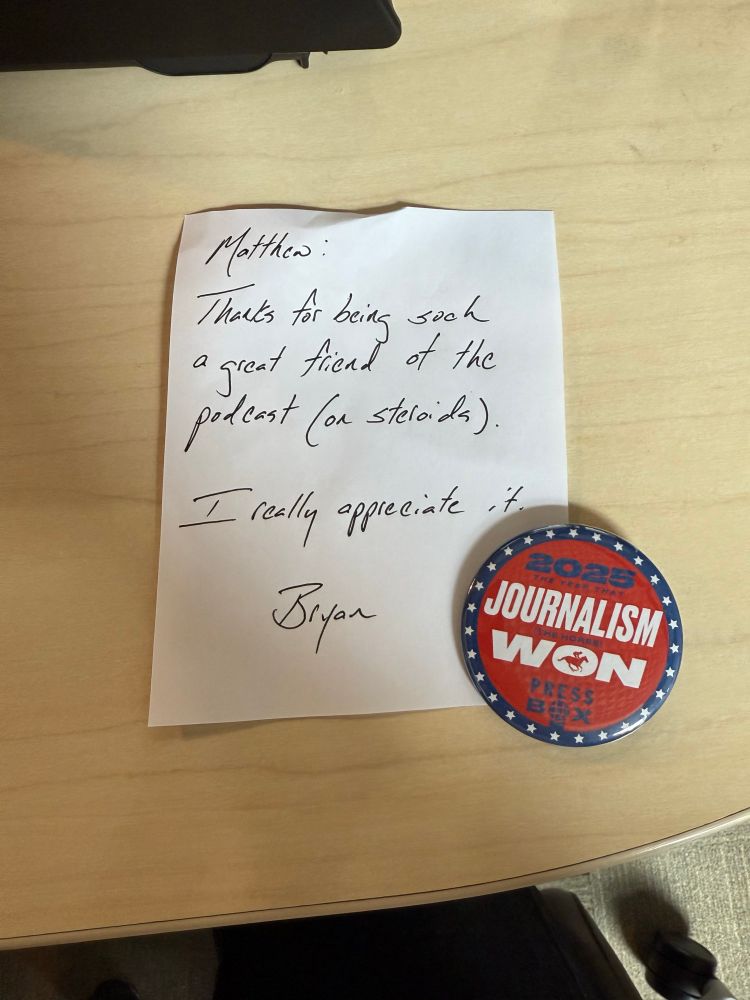 Matthew:
Thanks for being such
a great friend of the
podcast (on steroids).
I really appreciate it.
Bryan
2025
THE YEAR THAT
JOURNALISM
(THE HORSE)
WON
PRESS
BOX